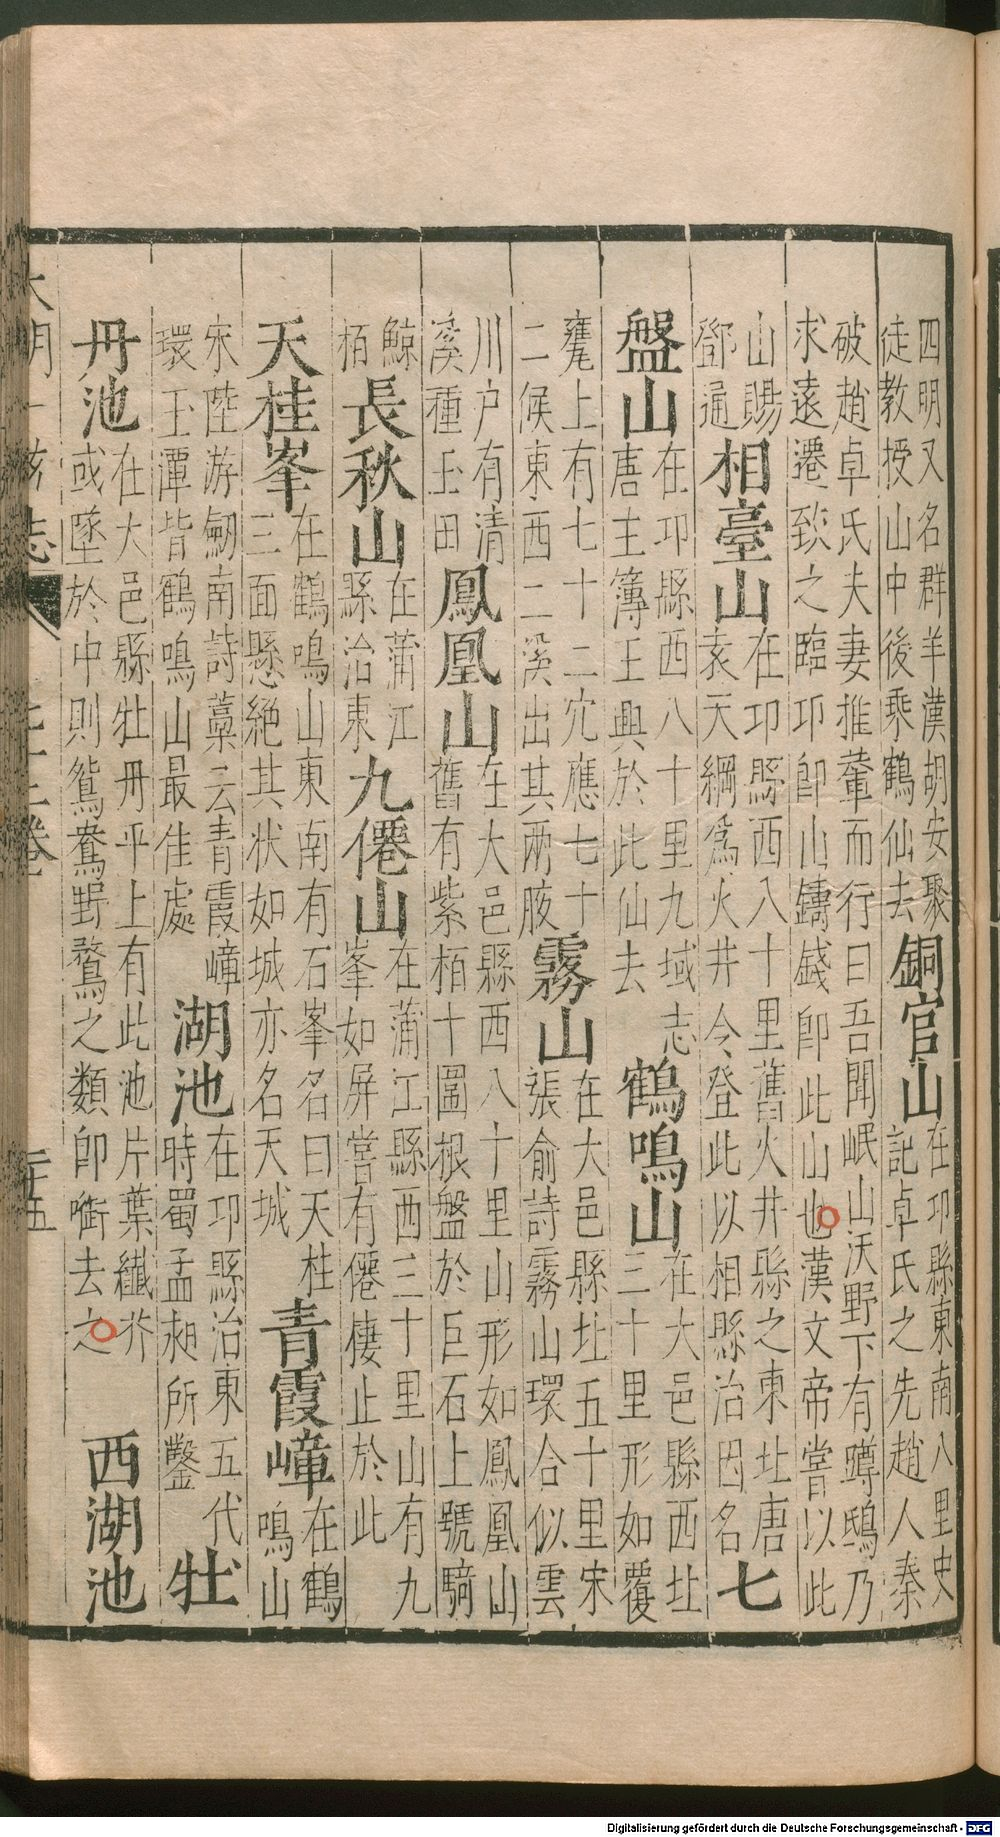 四明又名群羊漢胡安聚
徒教授山中後乘鶴仙去
銅官山
在卭縣東南八里史
記卓氏之先趙人秦
破趙卓氏夫妻推輦而行曰吾聞岷山沃野下有蹲鴟乃
求遠遷致之臨卭即山鑄錢即此山也漢文帝嘗以此
山賜
鄧通
相臺山
在卭縣西八十里舊火井縣之東北唐
袁天綱為火井令登此以相縣治因名
七
盤山
在卭縣西八十里九域志
唐主簿王興於此仙去
鶴鳴山
在大邑縣西北
三十里形如覆
甕上有七十二穴應七十
二候東西二溪出其兩腋
霧山
在大邑縣北五十里宋
張俞詩霧山環合似雲
川户有清
溪種玉田
鳳凰山
在大邑縣西八十里山形如鳳凰山
舊有紫栢十圍根盤於巨石上號騎
鯨
栢
長秋山
在蒲江
縣治東
九僊山
在蒲江縣西三十里山有九
峯如屏嘗有僊棲止於此
天桂峯
在鶴鳴山東南有石峯名曰天桂
三面懸絕其狀如城亦名天城
青霞嶂
在鶴
鳴山
宋陸游劒南詩藁云青霞嶂
環玉潭皆鶴鳴山最佳處
湖池
在卭縣治東五代
時蜀孟昶所鑿
牡
丹池
在大邑縣牡丹平上有此池片葉纖芥
或墜於中則鴛鴦野鶩之類即啣去之
西湖池
大明一統志
Digitalisierung gefördert durch die Deutsche Forschungsgemeinschaft - DFG